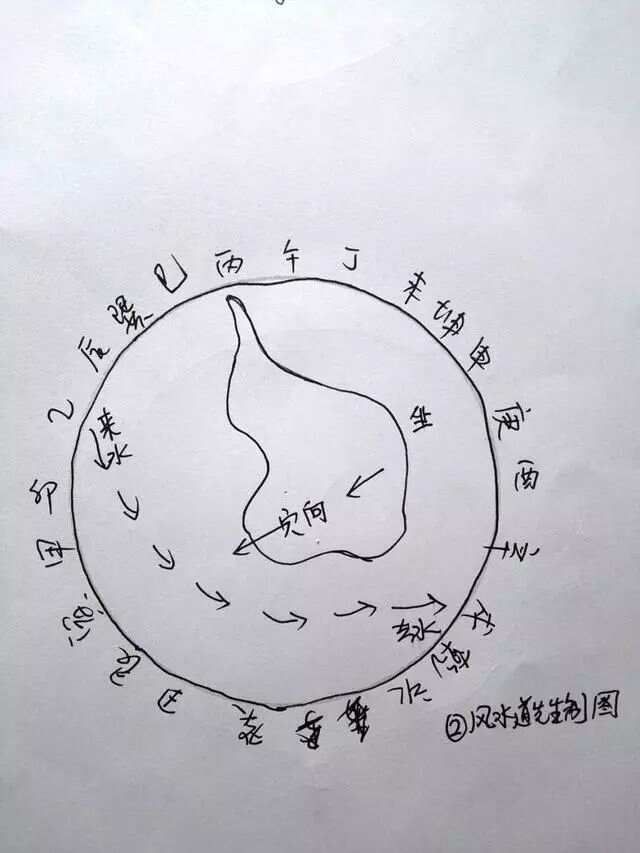 巳
丙
午
丁
未
坤
申
庚
酉
辛
戌
乾
丑
艮
寅
甲
卯
乙
辰
巽
来水
坐
穴向
去水
②风水道先生制图